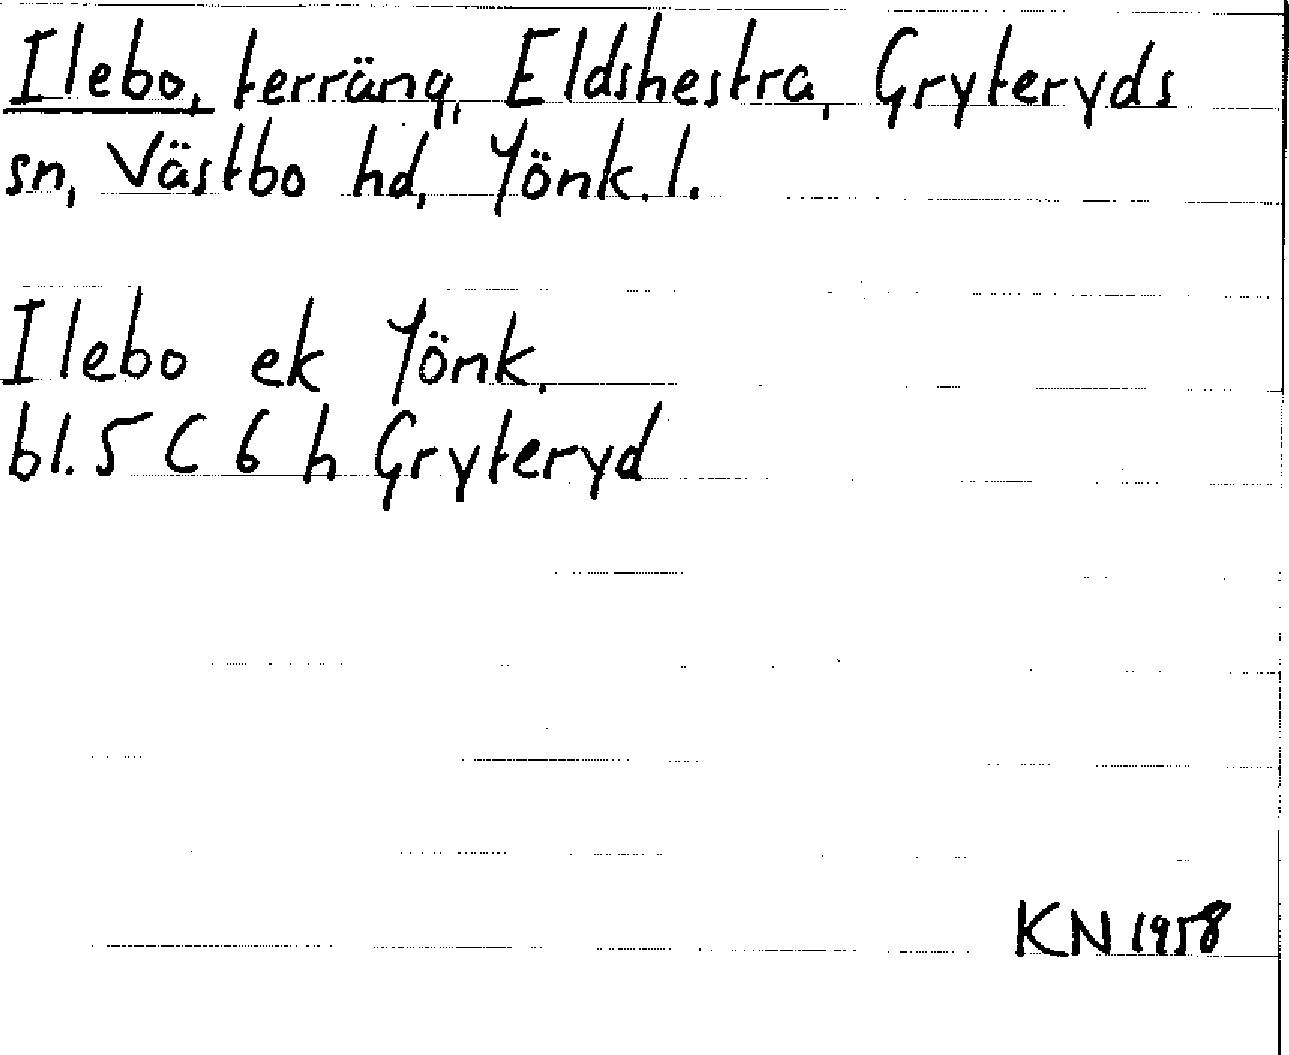 Ilebo, terräng, Eldshestra, Gryteryds
sn, Västbo hd, Jönk. l.
Ilebo ek Jönk.
bl. 5 C 6 h Gryteryd
KN 1958